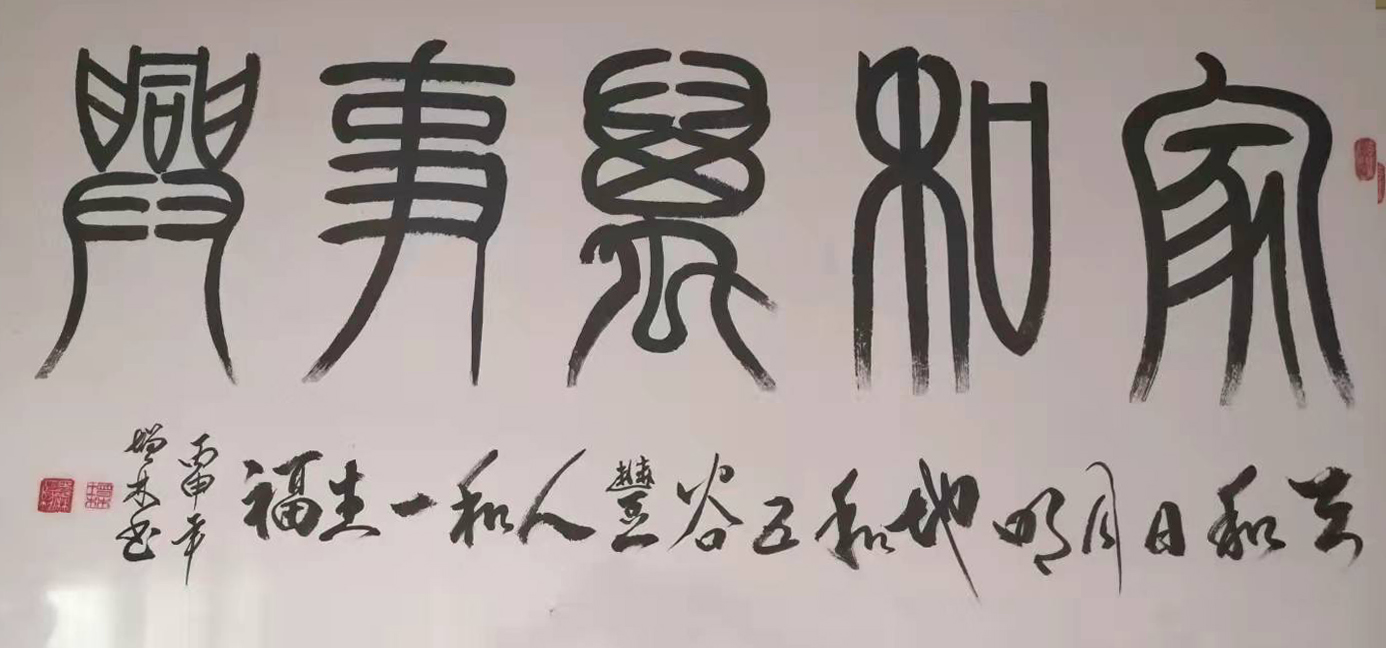 家和萬事興
天和日月明地和五谷豐人和一生福
丙申年
增林书